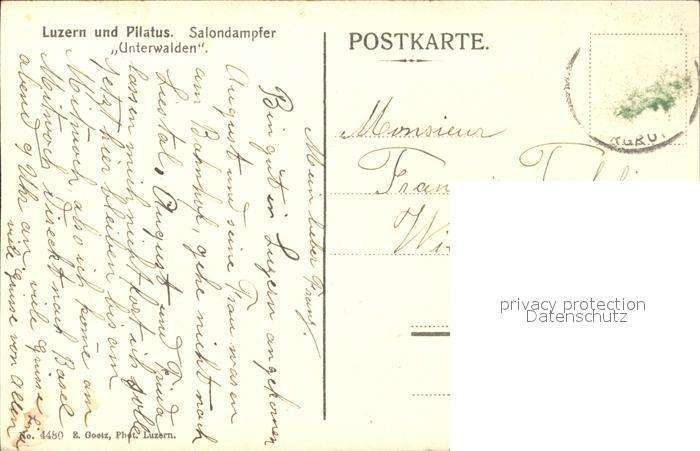 Luzern und Pilatus. Salondampfer
„Unterwalden“.
POSTKARTE.
Monsieur
Mein lieber Franz!
Bin gut in Luzern angekommen
August und seine Frau waren
am Bahnhof, gehe nicht nach
Liestal, August und Frieda
lassen mich nicht fort ich solle
jetzt hier bleiben bis am
Mittwoch also ich kome am
Mittwoch direckt nach Basel
abend 9 Uhr an viele grüsse
viele grüsse von allen
No. 4480 E. Goetz, Phot. Luzern.
privacy protection
Datenschutz